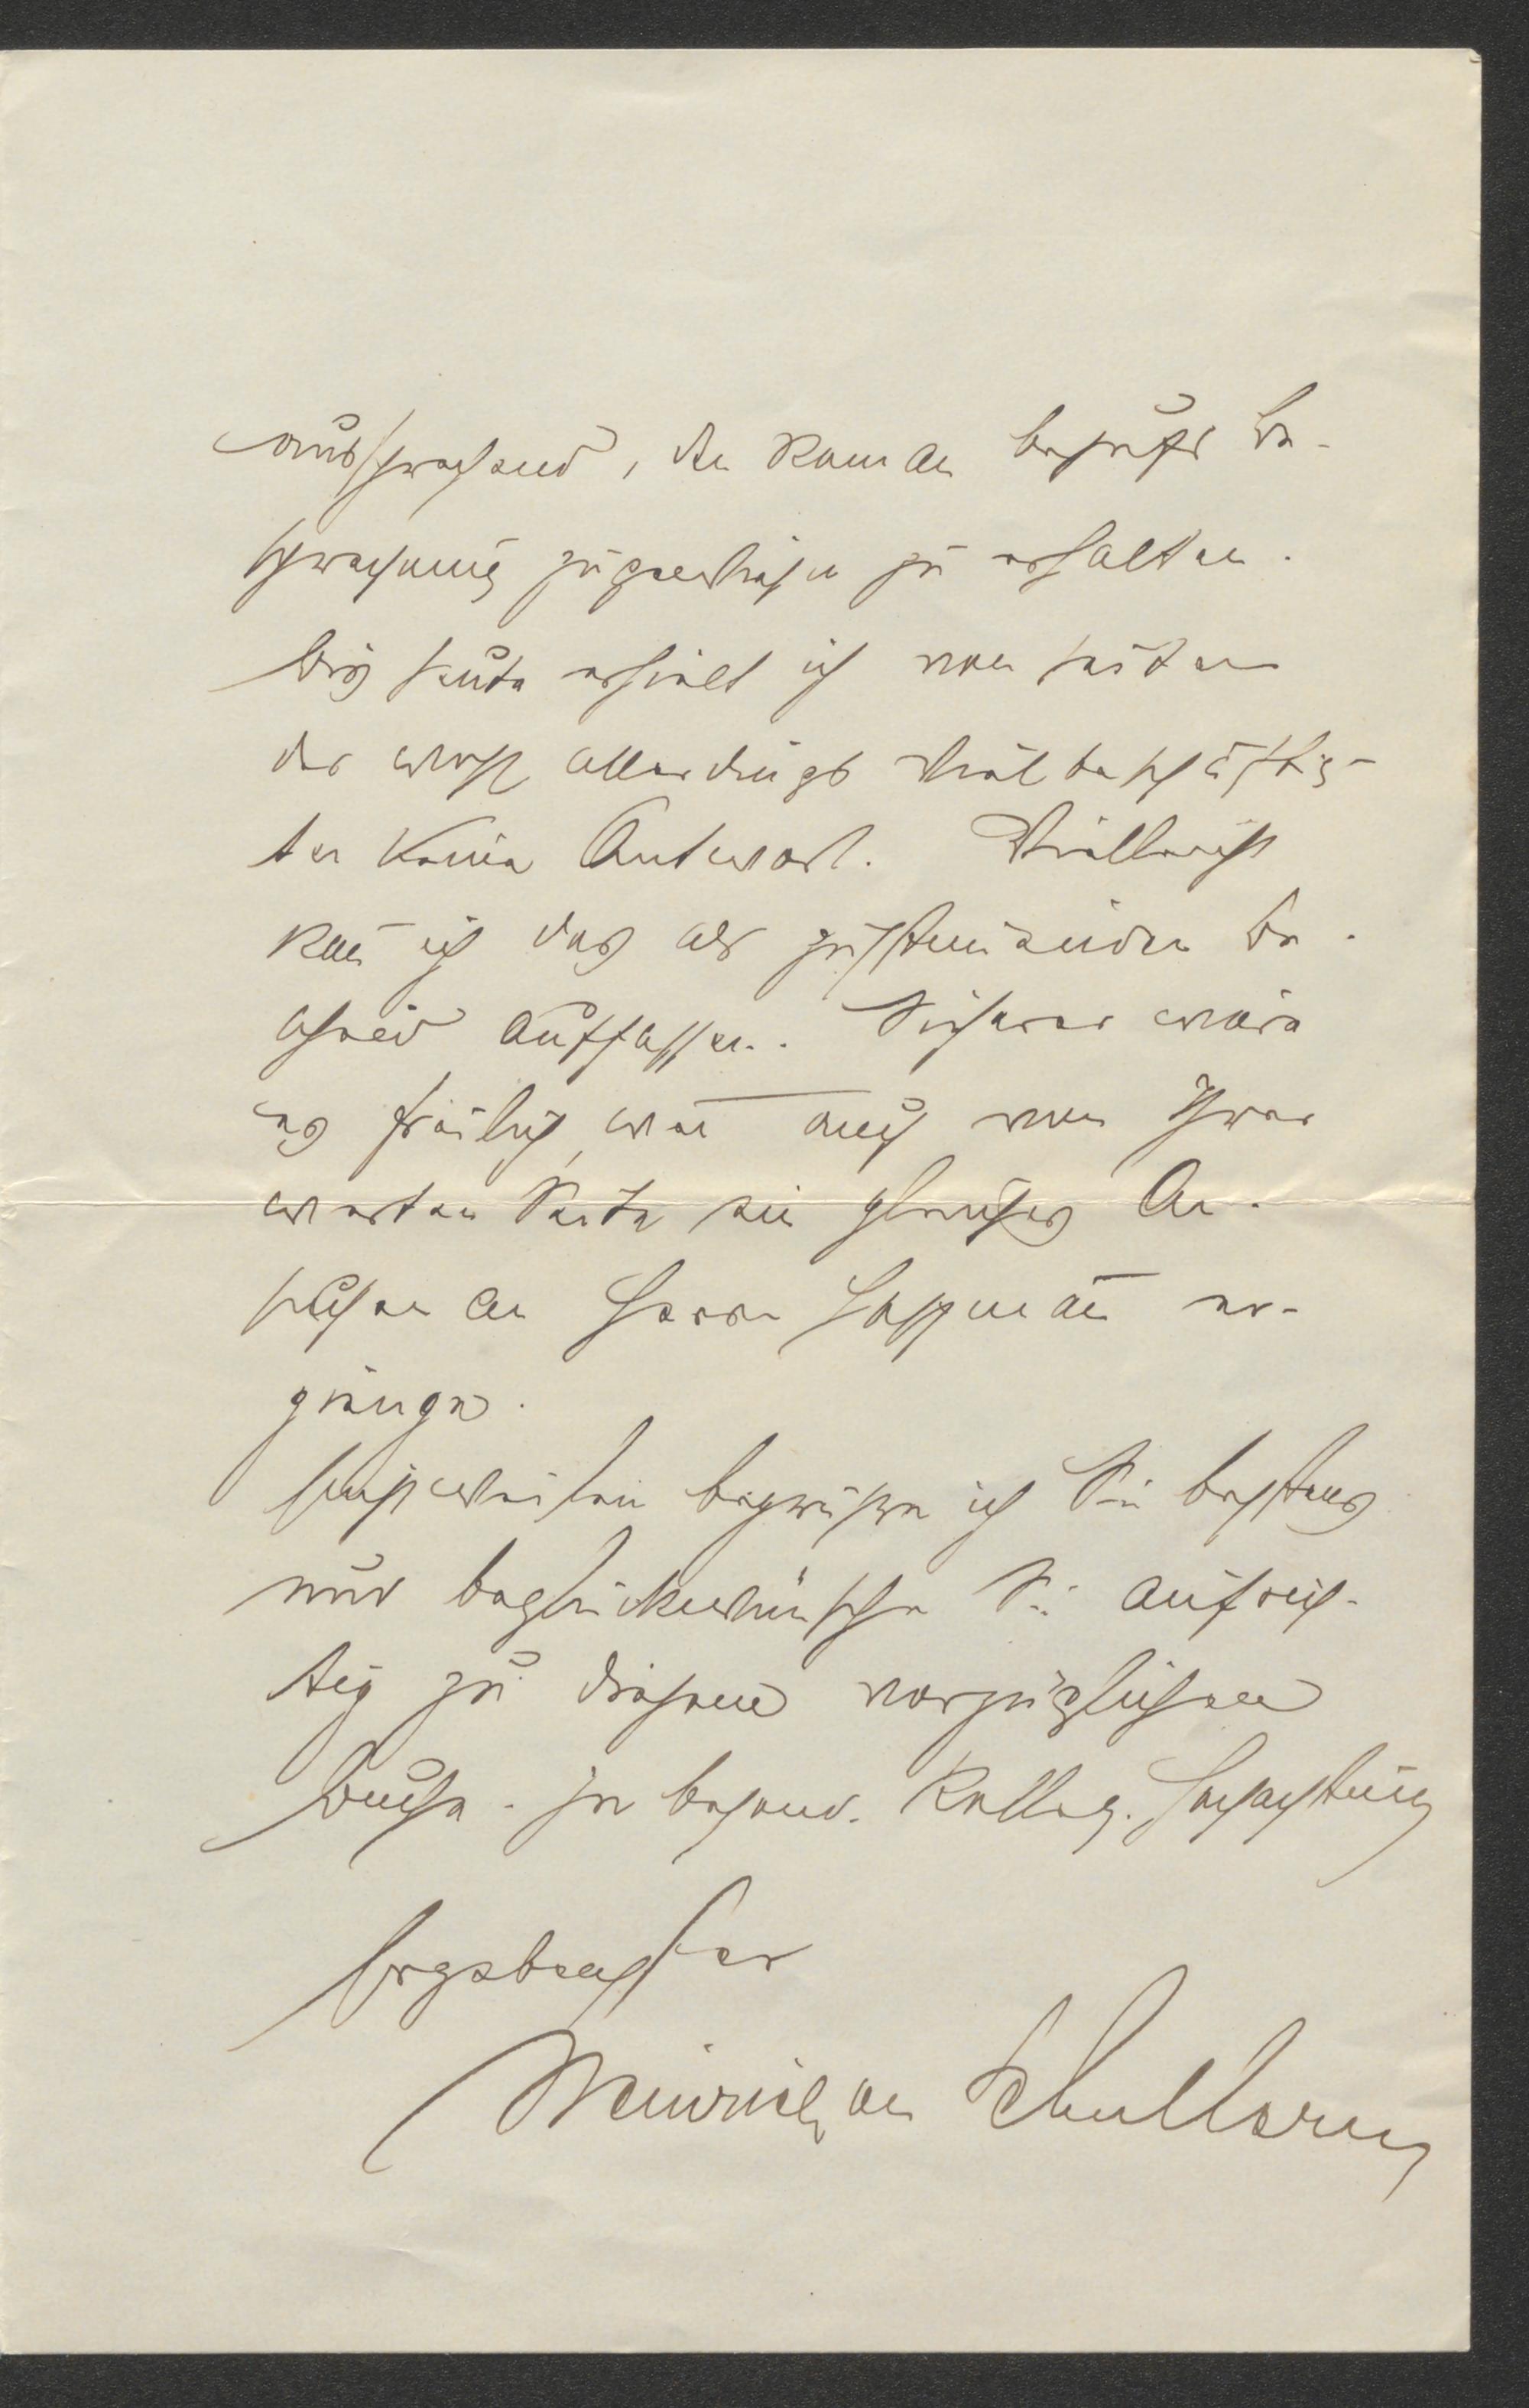 aussprechend, den Roman behufs Be-
sprechung zugewiesen zu erhalten.
Bis heute erhielt ich von seiten
der wohl allerdings Vielbeschäftig-
ten keine Antwort. Vielleicht
kan̄ ich das als zustimmenden Be-
scheid auffassen. Sicherer wäre
es freilich, wen̄ auch von Ihrer
werten Seite ein gleiches An-
suchen an Herrn Hassman̄ er-
ginge.
Einstweilen begrüße ich Sie bestens
und beglückwünsche Sie aufrich-
tig zu diesem vorzüglichen
Buche. In besond. Kolleg. Hochachtung
Ergebenster
Heinrich von Schullern